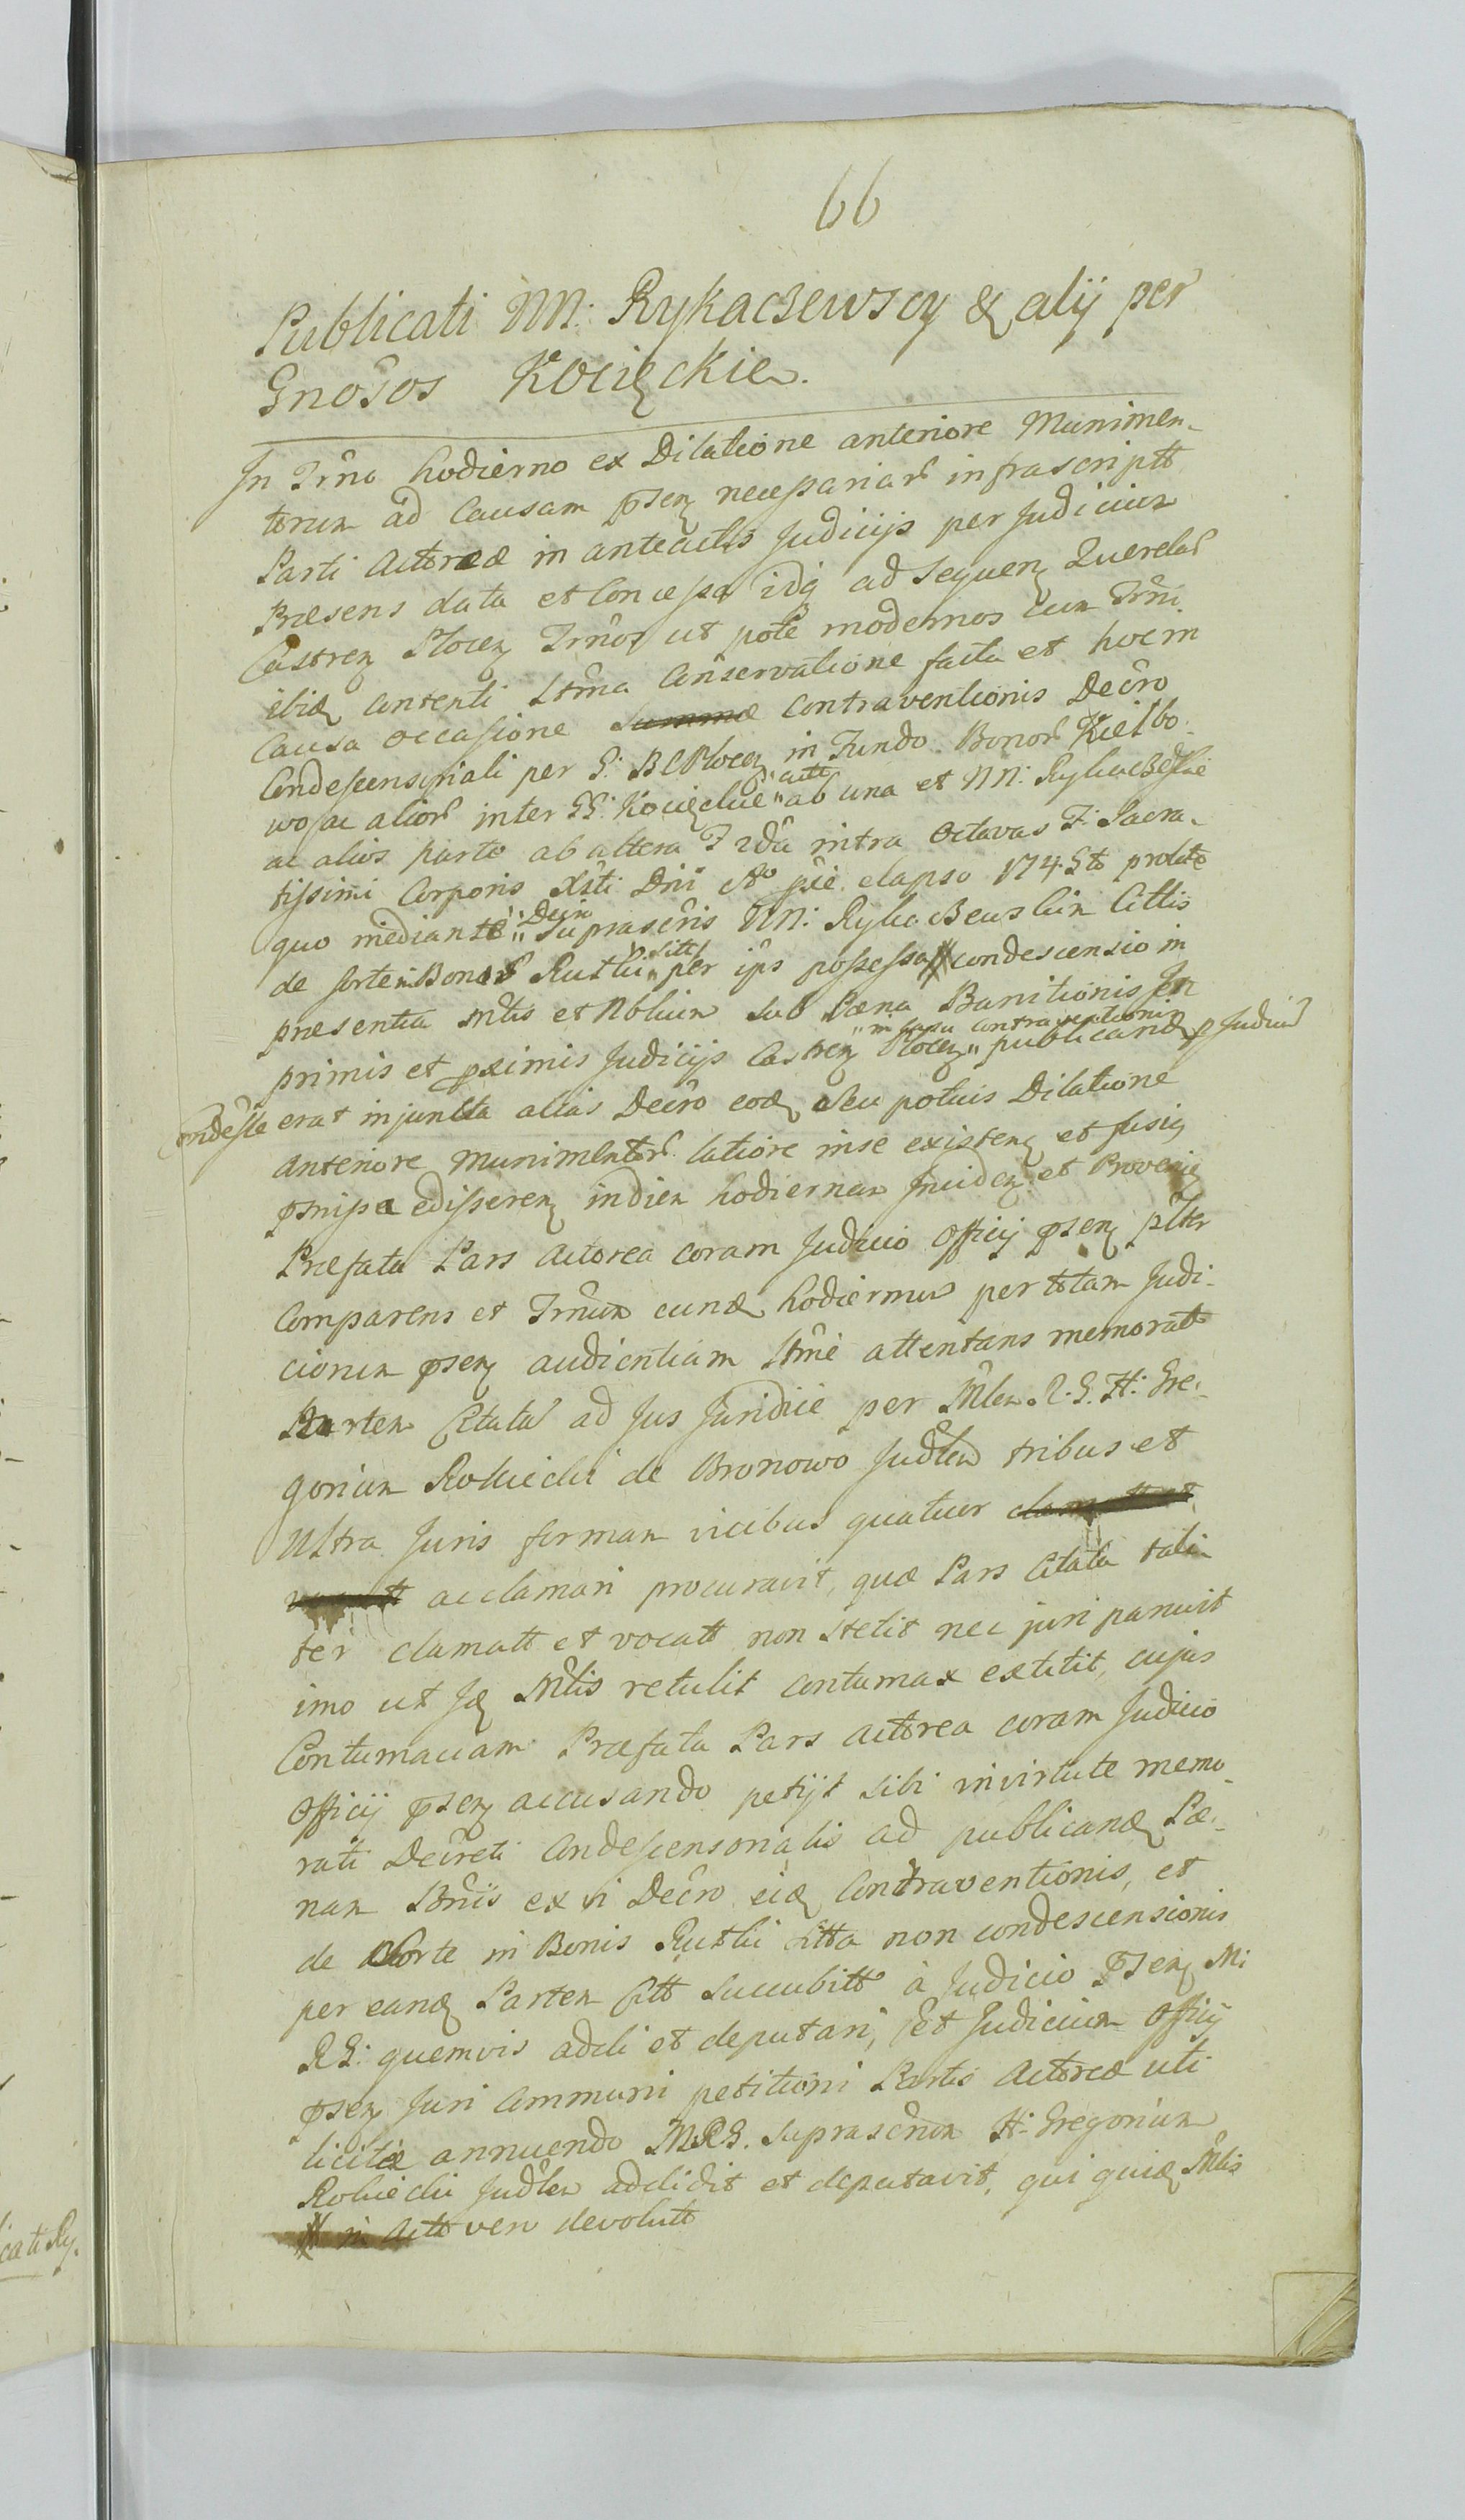 66
Publicati NN: Rykaczewscy & alij per
Gnosos Kocięckie.
In Trno hodierno ex Dilatione anteriore Munimen-
torum ad Causam psen necessariar infrascriptt
Parti Actoreæ in anteactis Judicijs per Judicium
Præsens data et Concessa idq ad Sequen Querelar
Castren Plocen Trnos ut pote modernos cum Trni
ibid contenti Strna Conservatione facta et hoc in
Causa occasione Summæ Contraventionis Decro
Condescensoriali per G: B C Plocen in Fundo Bonor Kiełbo-
wo ac alior inter GG: Kocięckie "actt" ab una et NN: Rykaczewskie
ac alios parte ab altera F 2da intra Octavas F: Sacra-
tissimi Corporis Xsti Dni Ao pie elapso 174.5to prolate
quo mediante "Decro" suprascris NN: Rykaczewskim Cittis
de sorte in Bonor Rutki "sitt" per ips possessa condescensio in
præsentia Mlis et Nblium sub Pæna Banitionis In
primis et pximis Judicijs Castren Plocen "in casu contraventionis" publicand p Judiciu
Condesle erat injuncta alias Decro eod Seu potius Dilatione
anteriore Munimentor latiore in se existen et fusius
pmissa edisseren in diem hodiernam Inciden et Provenien
Præfata Pars Actorea coram Judicio Officij psen plter
Comparens et Trnum eund hodiernum per totam Judi-
ciorum psen audientiam Strne attentans memoratt
Partem Citata ad Jus Juridice per Mlem R. G. H: Gre-
gorium Rokiecki de Bronowo Judlem tribus et
Ultra Juris formam vicibus quatuor
acclamari procuravit, quæ Pars Citata tali
ter clamatt et vocatt non stetit nec juri paruit
imo ut Id Mlis retulit contumax extitit, cujus
Contumaciam Præfata Pars Actorea coram Judicio
Officij psen accusando petijt sibi in virtute memo-
rati Decreti Condescensorialis ad publicand Pæ-
nam Bnis ex vi Decro eid Contraventionis, et
de Sorte in Bonis Rutki sitta non condescensionis
per eand Partem Citt succubitt à Judicio psen M:
R G: quemvis addi et deputari, et Judicium Officij
psen Juri Communi petitioni Partis Actoreæ uti
licitæ annuendo M R G. suprascrium H: Gregorium
Rokiecki Judlem addidit et deputavit, qui quid Mlis
in Actt vero devolutt